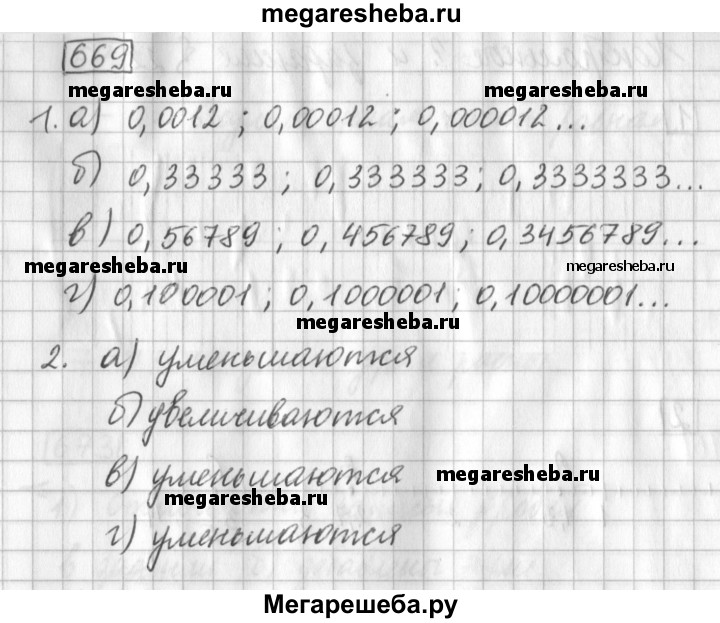 megaresheba.ru
669
megaresheba.ru megaresheba.ru
1. а) 0,0012 ; 0,00012 ; 0,000012...
б) 0,33333 ; 0,333333 ; 0,3333333...
в) 0,56789 ; 0,456789 ; 0,3456789...
megaresheba.ru megaresheba.ru
г) 0,100001 ; 0,1000001 ; 0,10000001...
megaresheba.ru
2. а) уменьшаются
б) увеличиваются
в) уменьшаются
megaresheba.ru
megaresheba.ru
г) уменьшаются
Мегарешеба.ру